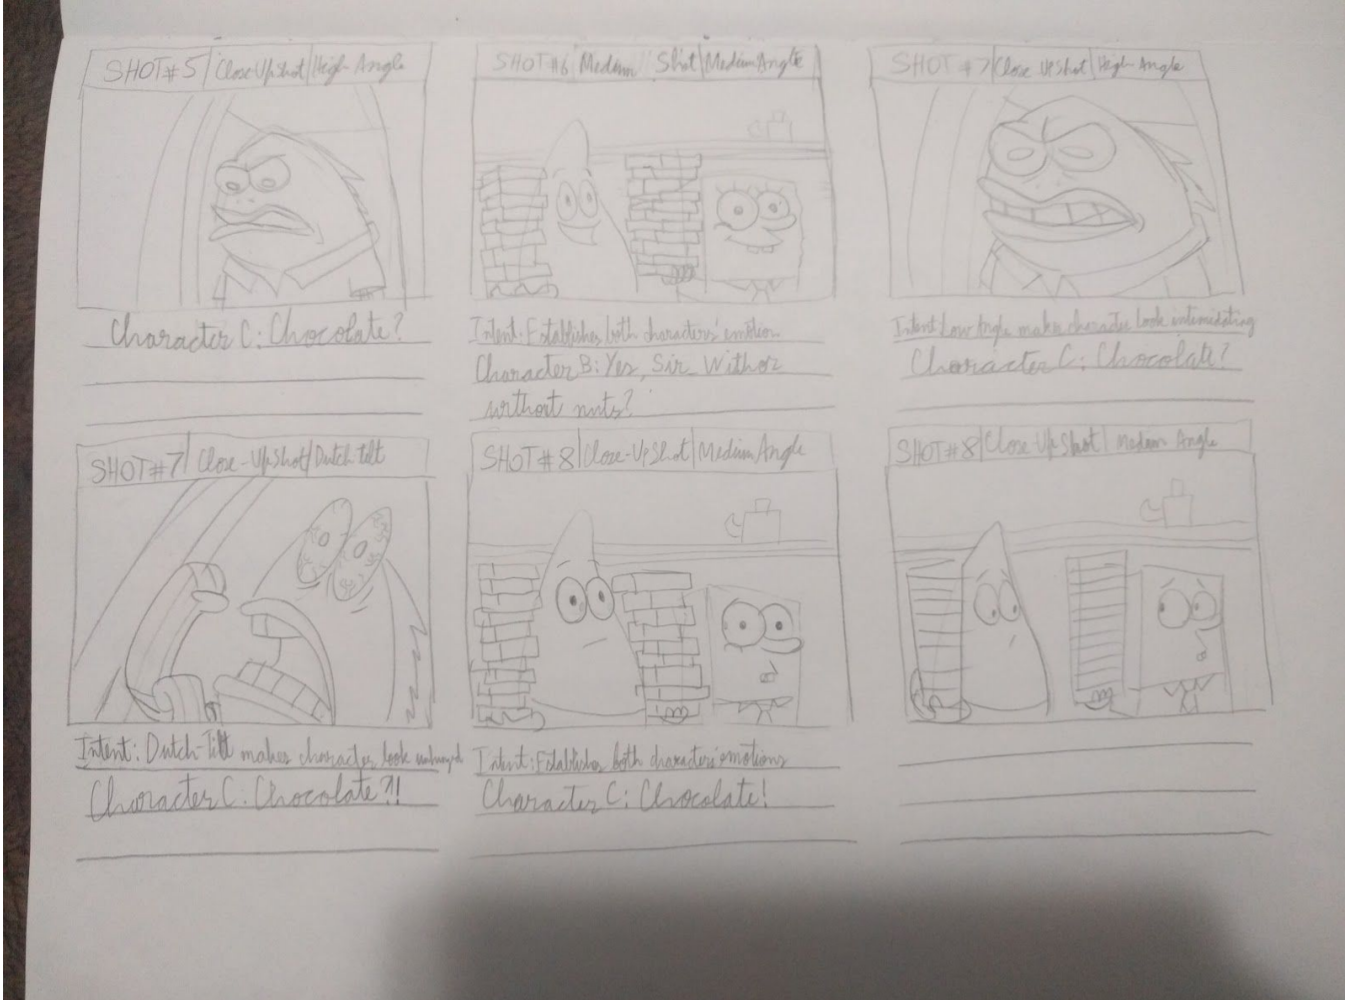 SHOT#5 | Close-Up Shot | High-Angle
Character C: Chocolate?
SHOT#6 | Medium Shot | Medium Angle
Intent: Establishes both characters' emotion
Character B: Yes, Sir. With or
without nuts?
SHOT #7 | Close Up Shot | High-Angle
Intent: Low Angle makes character look intimidating
Character C: Chocolate?
SHOT#7 | Close-Up Shot | Dutch tilt
Intent: Dutch-Tilt makes character look unhinged
Character C: Chocolate?!!
SHOT#8 | Close-Up Shot | Medium Angle
Intent: Establishes both characters' emotions
Character C: Chocolate!
SHOT#8 | Close Up Shot | Medium Angle